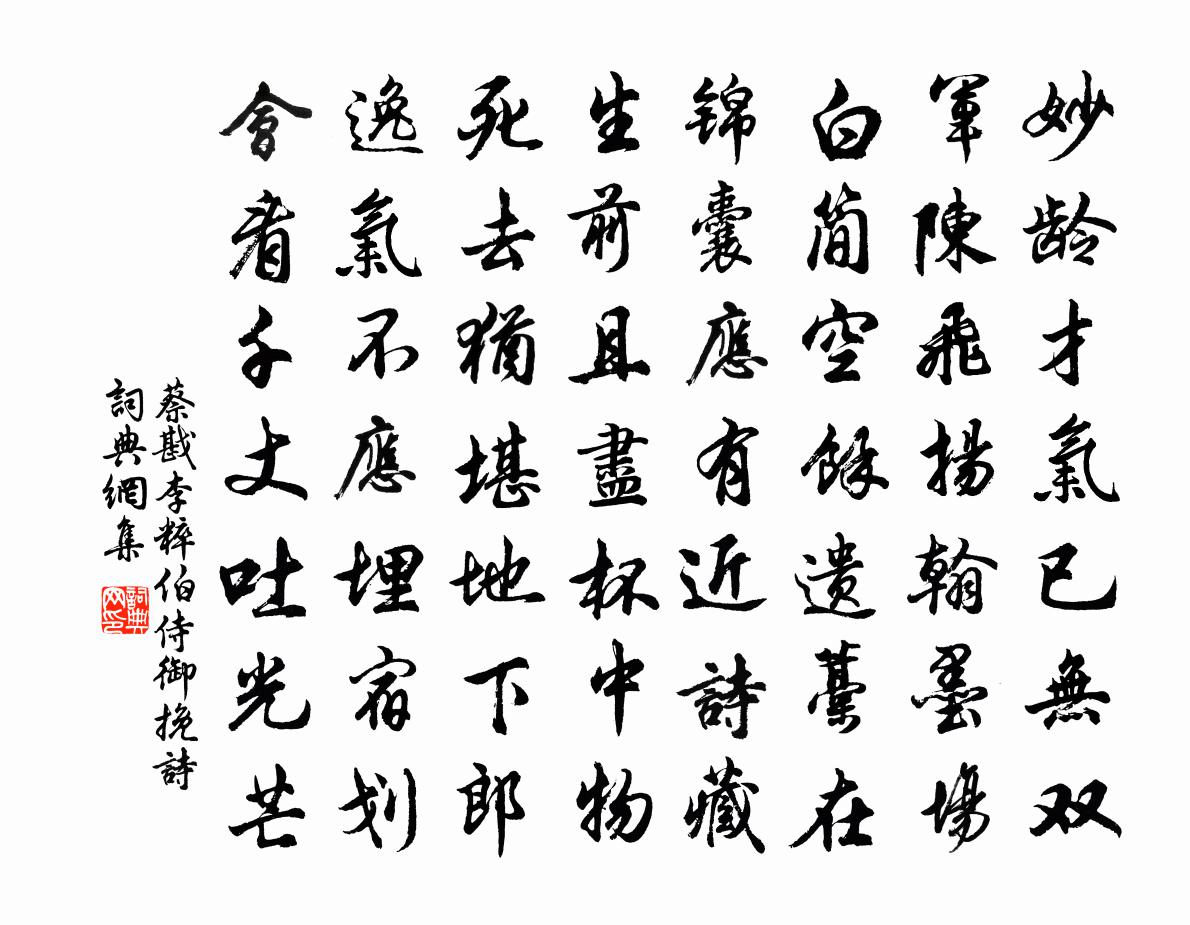 妙龄才氣已無双
軍陳飛揚翰墨場
白简空餘遗藁在
锦囊應有近詩藏
生前且盡杯中物
死去猶堪地下郎
逸氣不應埋宿划
會看千丈吐光芒
蔡戡李粹伯侍御挽詩
詞典網集
詞典网印